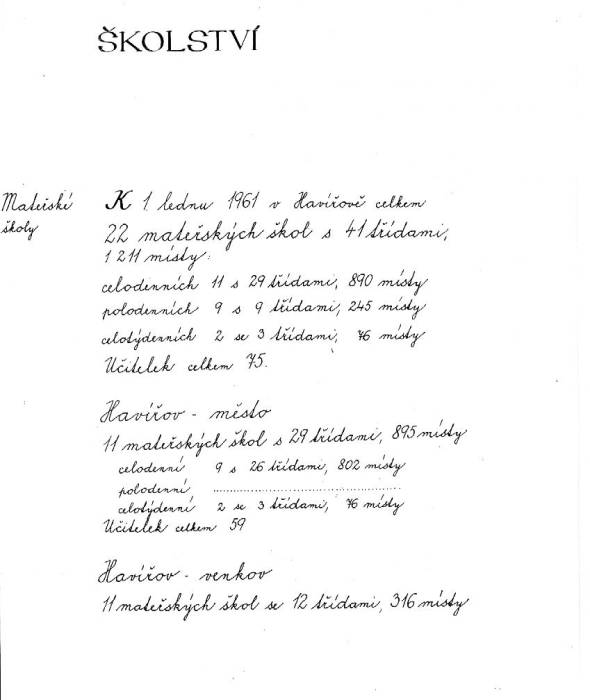 ŠKOLSTVÍ
Mateřské
školy
K 1 lednu 1961 v Havířově celkem
22 mateřských škol s 41 třídami,
1 211 místy:
celodenních 11 s 29 třídami, 890 místy
polodenních 9 s 9 třídami, 245 místy
celotýdenních 2 se 3 třídami, 76 místy
Učitelek celkem 75.
Havířov - město
11 mateřských škol s 29 třídami, 895 místy
celodenní 9 s 26 třídami, 802 místy
polodenní ........................................
celotýdenní 2 se 3 třídami, 76 místy
Učitelek celkem 59
Havířov - venkov
11 mateřských škol se 12 třídami, 316 místy